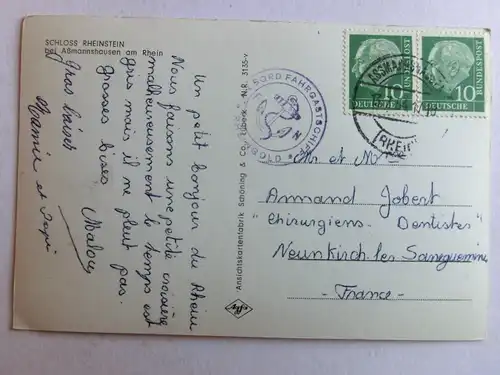 SCHLOSS RHEINSTEIN
bei Aßmannshausen am Rhein
Un petit bonjour du Rhein
Nous faisons une petite croisière
malheureusement le temps est
gris mais il ne pleut pas.
Grosses bises
Malou
Gros baisers
Mamie et Papi
Ansichtskartenfabrik Schöning & Co., Lübeck
BORD FAHRGASTSCHIFF
10 10
DEUTSCHE BUNDESPOST
DEUTSCHE BUNDESPOST
(RHEIN
Mr et M
Armand Jobert
"Chirurgiens. Dentistes"
Neunkirch les Sarreguemines
- France -